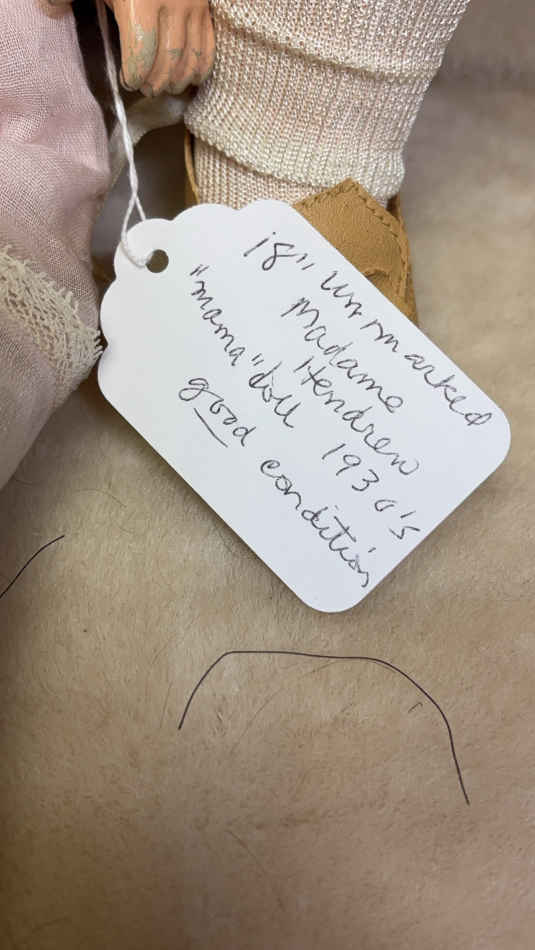 18" unmarked
Madame
Hendren
"mama" doll 1930's
good condition